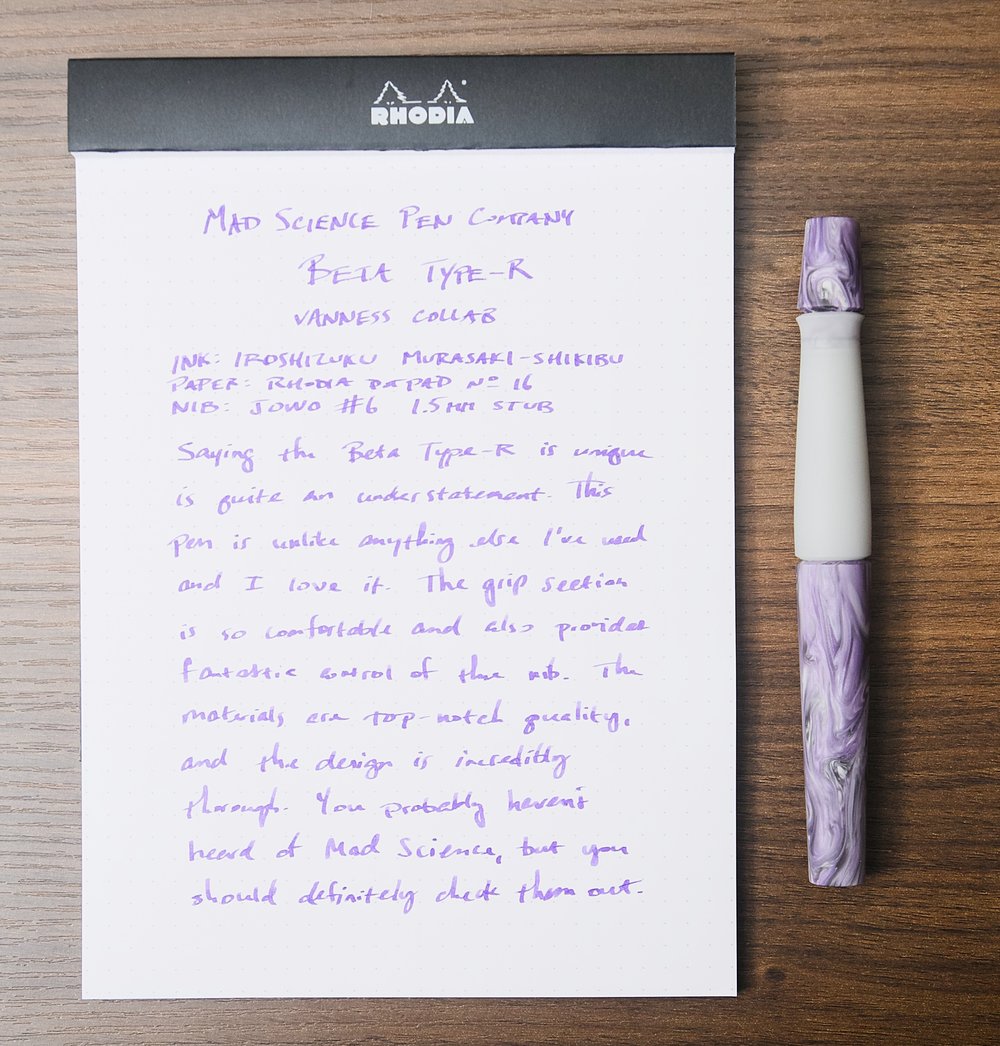 RHODIA
MAD SCIENCE PEN COMPANY
BETA TYPE-R
VANNESS COLLAB
INK: IROSHIZUKU MURASAKI-SHIKIBU
PAPER: RHODIA DOTPAD Nº 16
NIB: JOWO #6 1.5MM STUB
Saying the Beta Type-R is unique
is quite an understatement. This
pen is unlike anything else I've used
and I love it. The grip section
is so comfortable and also provides
fantastic control of the nib. The
materials are top-notch quality,
and the design is incredibly
thorough. You probably haven't
heard of Mad Science, but you
should definitely check them out.